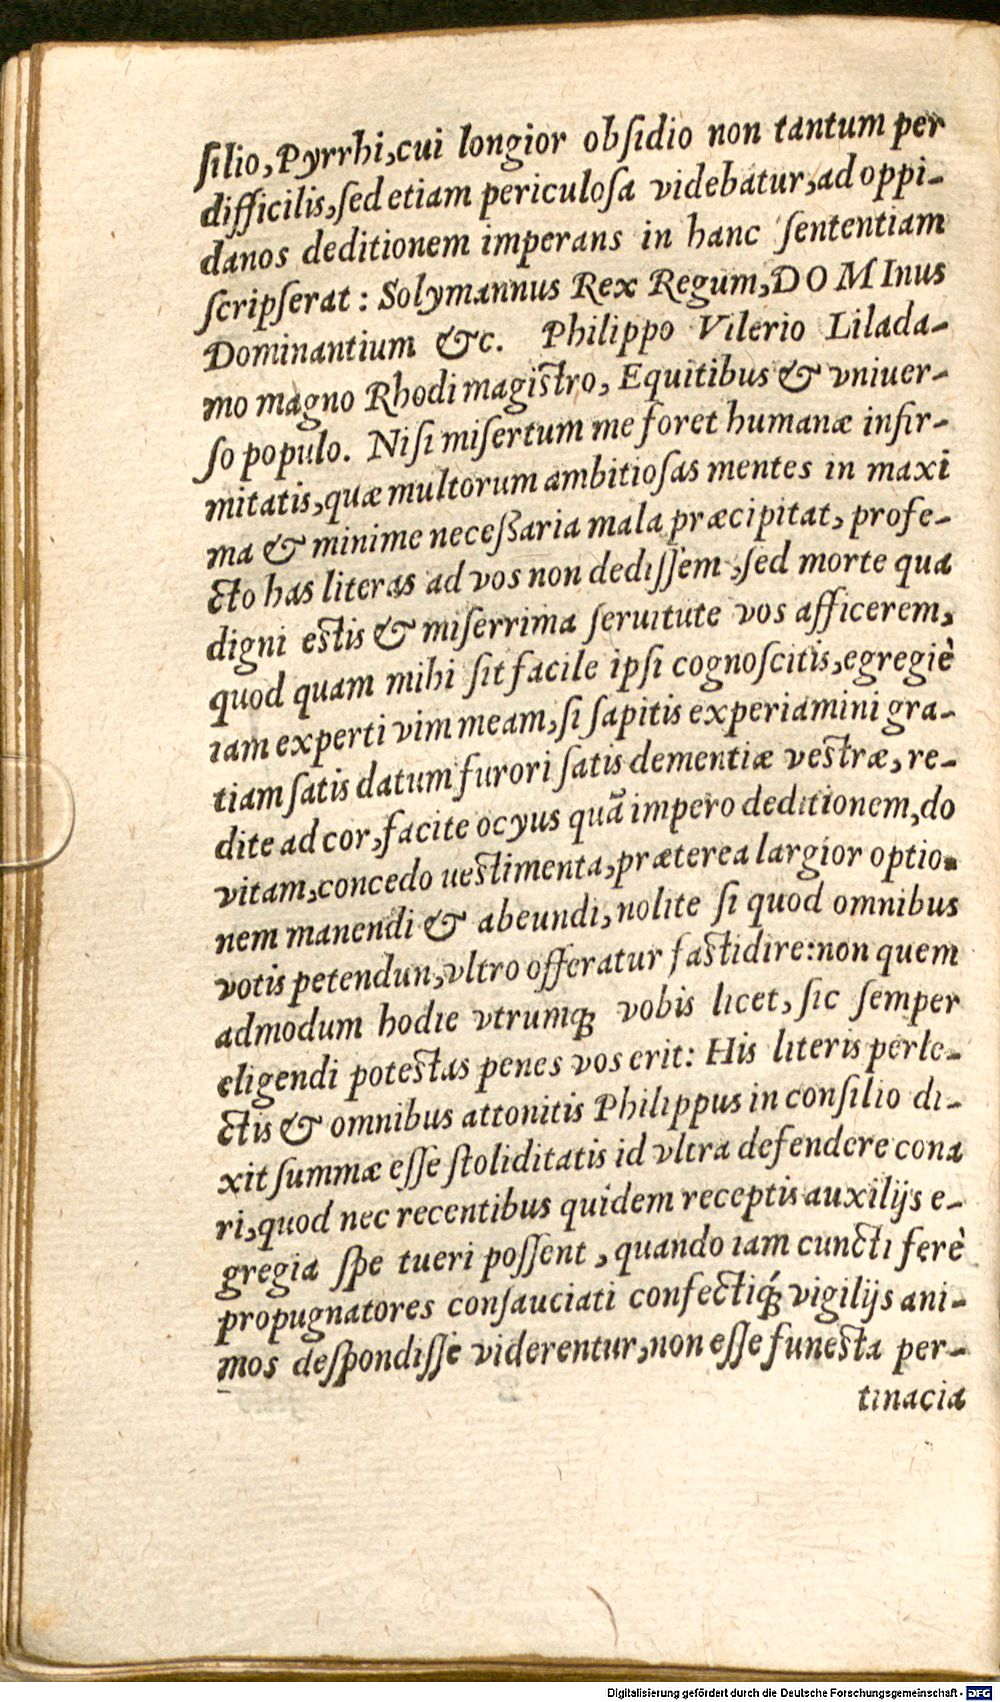 ſilio, Pyrrhi, cui longior obſidio non tantum per
difficilis, ſed etiam periculoſa videbatur, ad oppi-
danos deditionem imperans in hanc ſententiam
ſcripſerat: Solymannus Rex Regum, DOMInus
Dominantium &c. Philippo Vilerio Lilada-
mo magno Rhodi magiſtro, Equitibus & vniuer-
ſo populo. Niſi miſertum me foret humanæ infir-
mitatis, quæ multorum ambitioſas mentes in maxi
ma & minime neceßaria mala præcipitat, profe-
cto has literas ad vos non dediſſem, ſed morte qua
digni eſtis & miſerrima ſeruitute vos afficerem,
quod quam mihi ſit facile ipſi cognoſcitis, egregiè
iam experti vim meam, ſi ſapitis experiamini gra-
tiam ſatis datum furori ſatis dementiæ veſtræ, re-
dite ad cor, facite ocyus quã impero deditionem, do
vitam, concedo ueſtimenta, præterea largior optio-
nem manendi & abeundi, nolite ſi quod omnibus
votis petendun, vltro offeratur faſtidire: non quem
admodum hodie vtrumq; vobis licet, ſic ſemper
eligendi poteſtas penes vos erit: His literis perle-
ctis & omnibus attonitis Philippus in conſilio di-
xit ſummæ eſſe ſtoliditatis id vltra defendere cona
ri, quod nec recentibus quidem receptis auxilijs e-
gregia ſpe tueri poſſent, quando iam cuncti ferè
propugnatores conſauciati confectiq́; vigilijs ani-
mos deſpondiſſe viderentur, non eſſe funeſta per-
tinacia
Digitalisierung gefördert durch die Deutsche Forschungsgemeinschaft - DFG